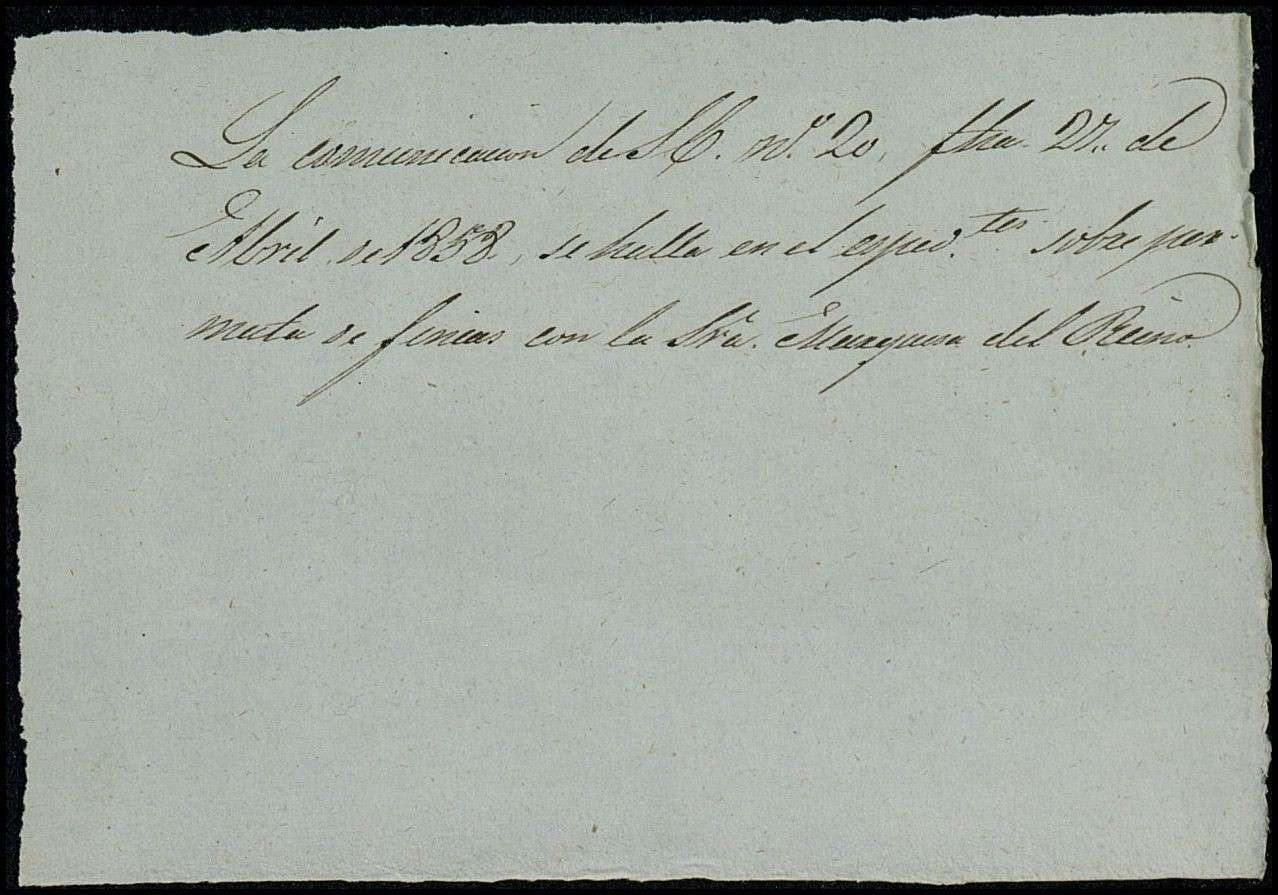 La comunicacion de S.E. nº 20, fha. 27. de
Abril de 1858, se halla en el exped.tes sobre per-
muta de fincas con la Sra. Marquesa del Reino